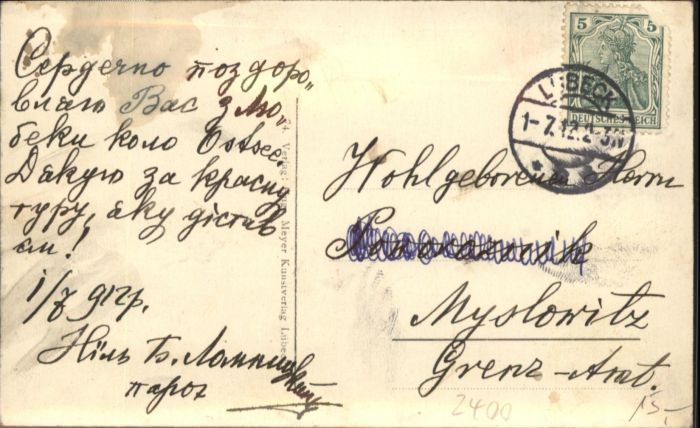 Сердечно поздоро„
вляю Вас з Лю„
беки коло Ostsee.
Дякую за красну
туру, яку дістав
єм!
1/7 912р.
Ніль Б.
парох
Verlag: Meyer Kunstverlag Lübeck
5 5
DEUTSCHES REICH
LÜBECK
1-7.12.2-3N
Wohlgeborenen Herrn
Myslowitz
Grenz-Amt.
2400
15.-